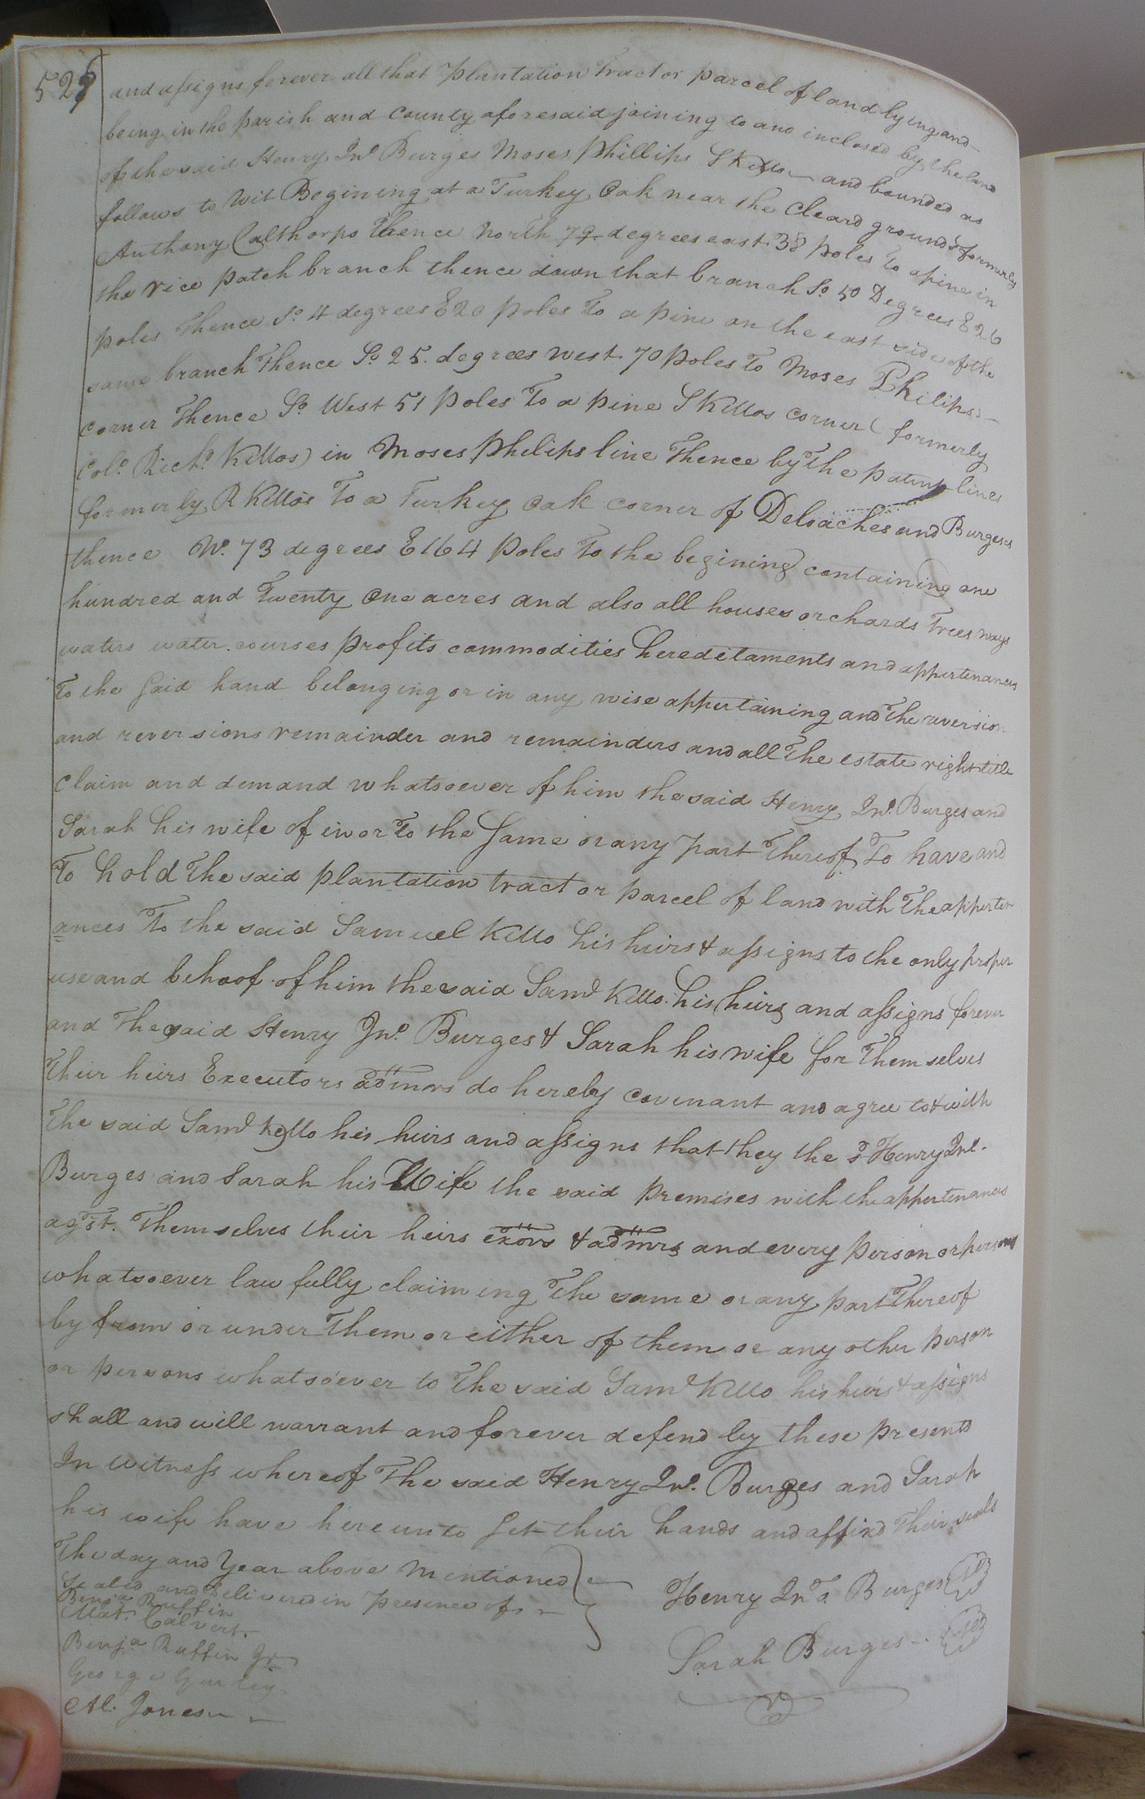 526
and assigns forever all that Plantation tract or parcel of land lying and
being in the parish and County aforesaid joining to and inclosed by the land
of the said Henry Jno Burges Moses Phillips S Kello and bounded as
follows to Wit Begining at a Turkey Oak near the Cleard grounds formerly
Anthony Calthorps thence North 72 degrees east 38 poles to a pine in
the rice patch branch thence down that branch So 50 Degrees E 26
poles Thence So 4 degrees E 20 poles To a pine on the east side of the
same branch Thence So 25 degrees west 70 poles To Moses Philips
corner Thence So West 51 poles To a pine S Kellos corner (formerly
Colo Richd Kellos) in Moses Philips line Thence by the patent lines
formerly R Kellos To a Turkey Oak corner of Deloaches and Burgeses
thence No 73 degrees E 164 poles To the begining containing one
hundred and Twenty One acres and also all houses orchards Trees ways
waters water courses profits commodities heredetaments and appertenances
To the Said hand belonging or in any wise appertaining and The reversion
and reversions remainder and remainders and all The estate right title
Claim and demand whatsoever of him the said Henry Jno Burges and
Sarah his wife of in or To the Same or any part Thereof To have and
To hold The said plantation tract or parcel of land with The apperten
ances To the said Samuel Kello his heirs & assigns to the only proper
use and behoof of him the said Saml Kello his heirs and assigns forever
and The said Henry Jno Burges & Sarah his wife for Themselves
Their heirs Executors admrs do hereby covenant and agree to & with
The said Saml Kello his heirs and assigns that they the sd Henry Jno.
Burges and Sarah his Wife the said premises with the appertenances
agst. Themselves their heirs exors & admrs and every person or persons
whatsoever lawfully claiming The same or any part Thereof
by from or under Them or either of them or any other person
or persons whatsoever to The said Saml Kello his heirs & assigns
shall and will warrant and forever defend by these presents
In witness whereof The said Henry Jno. Burges and Sarah
his wife have hereunto Set their hands and affixd Their seals
The day and Year above mentioned
Sealed and Delivered in presence of
Benja Ruffin
Mat. Calvert.
Benja Ruffin Jr
George Gurley
Al. Jones
Henry Jno Burges
Sarah Burges